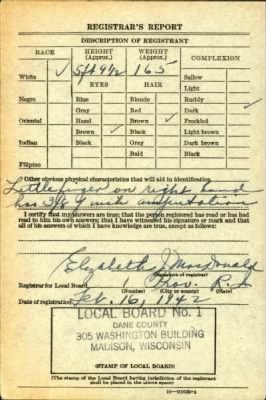 REGISTRAR'S REPORT
DESCRIPTION OF REGISTRANT
RACE HEIGHT (Approx.) WEIGHT (Approx.) COMPLEXION
White ✓ 5ft 9½ 165 Sallow
Light
EYES HAIR Ruddy ✓
Negro Blue Blonde Dark
Gray Red Freckled
Oriental Hazel Brown ✓ Light brown
Brown ✓ Black Dark brown
Indian Black Gray Black
Bald
Filipino
Other obvious physical characteristics that will aid in identification
Little finger on right hand
has 3/8 inch amputation
I certify that my answers are true; that the person registered has read or has had
read to him his own answers; that I have witnessed his signature or mark and that
all of his answers of which I have knowledge are true, except as follows:
Elizabeth J. MacDonald
(Signature of registrar)
Registrar for Local Board Prov. R.I.
(Number) (City or county) (State)
Date of registration Feb. 16, 1942
LOCAL BOARD No. 1
DANE COUNTY
305 WASHINGTON BUILDING
MADISON, WISCONSIN
(STAMP OF LOCAL BOARD)
(The stamp of the Local Board having jurisdiction of the registrant
shall be placed in the above space)